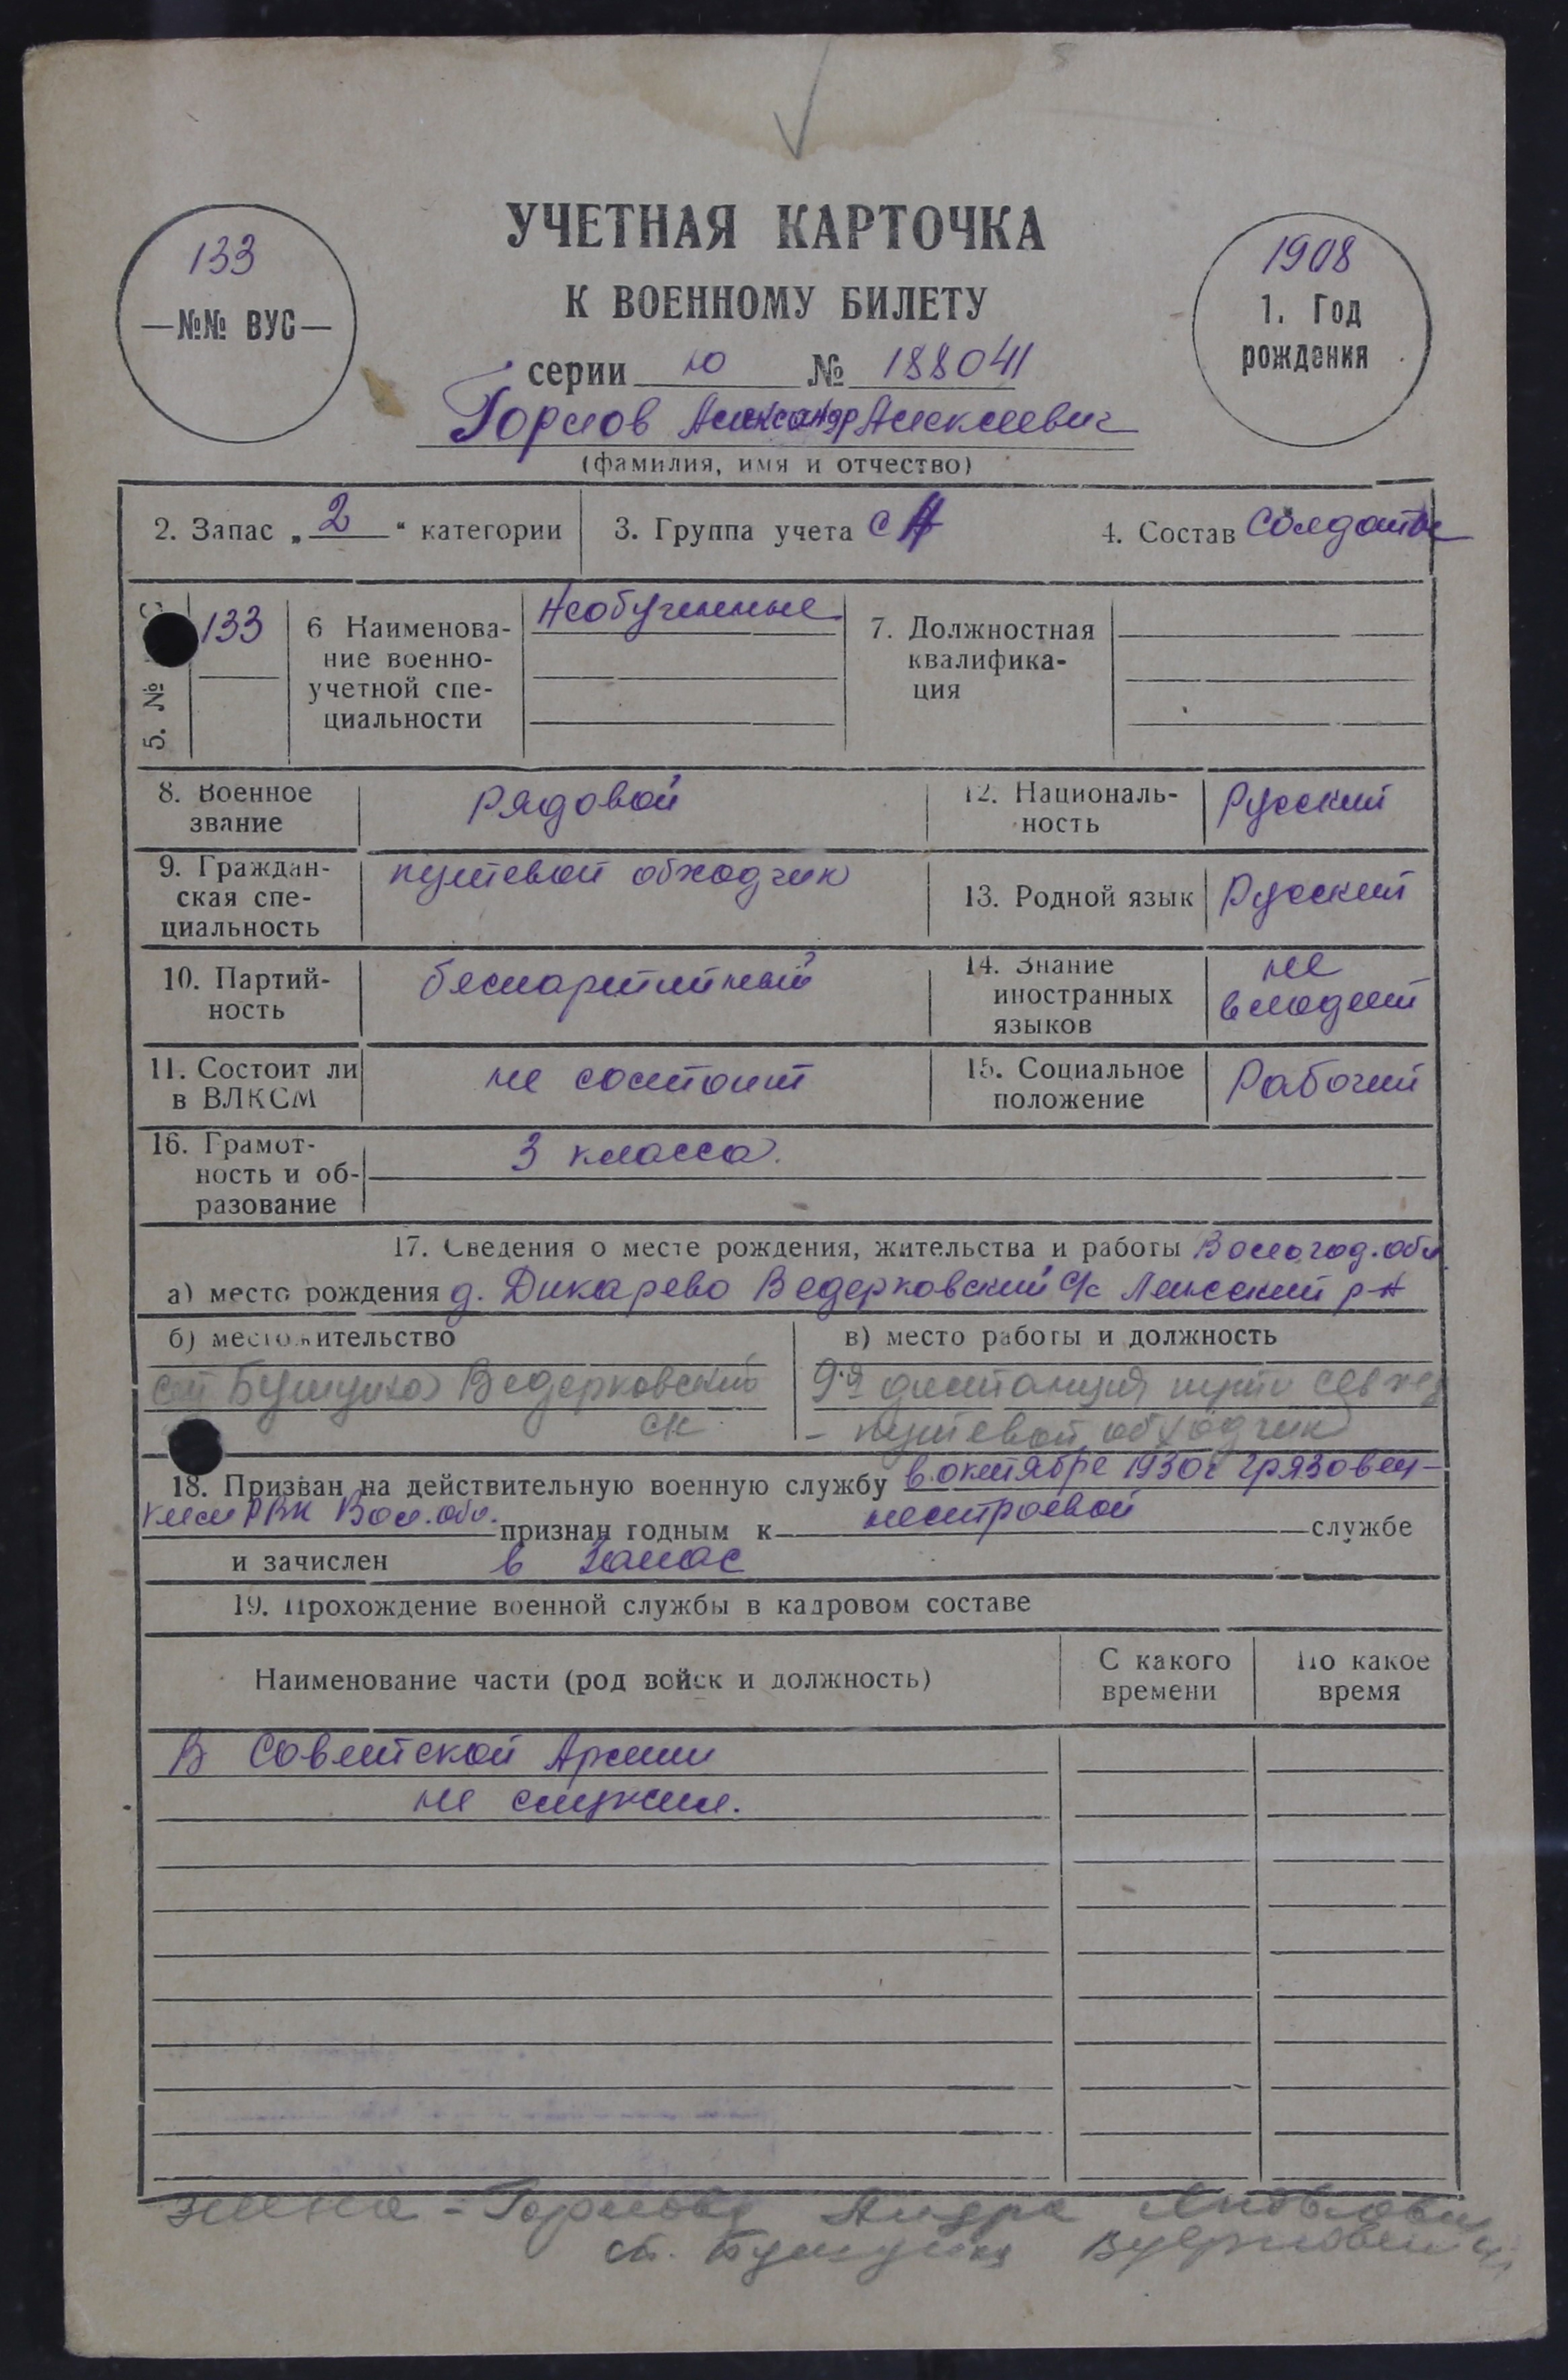 УЧЕТНАЯ КАРТОЧКА
К ВОЕННОМУ БИЛЕТУ
133
—№№ ВУС—
1908
1. Год
рождения
серии ю № 188041
Горлов Александр Алексеевич
(фамилия, имя и отчество)
2. Запас „2“ категории
3. Группа учета СА
4. Состав Солдаты
5. №
133
6 Наименова-
ние военно-
учетной спе-
циальности
Необученные
7. Должностная
квалифика-
ция
8. Военное
звание
рядовой
12. Националь-
ность
Русский
9. Граждан-
ская спе-
циальность
путевой обходчик
13. Родной язык
Русский
10. Партий-
ность
беспартийный
14. Знание
иностранных
языков
не
владеет
11. Состоит ли
в ВЛКСМ
не состоит
15. Социальное
положение
Рабочий
16. Грамот-
ность и об-
разование
3 класса.
17. Сведения о месте рождения, жительства и работы Вологод. обл
а) место рождения д. Дикарево Ведерковский с/с Лежский р-н
б) место жительство
в) место работы и должность
Бушуиха Ведерковский
ск
9я дистанция пути Сев жд
- путевой обходчик
18. Призван на действительную военную службу в октябре 1930г Грязовец-
ким РВК Вол. обл. признан годным к нестроевой службе
и зачислен в запас
19. Прохождение военной службы в кадровом составе
Наименование части (род войск и должность)
С какого
времени
По какое
время
В Советской Армии
не служил.
жена - Горлова
ст. Бушуиха